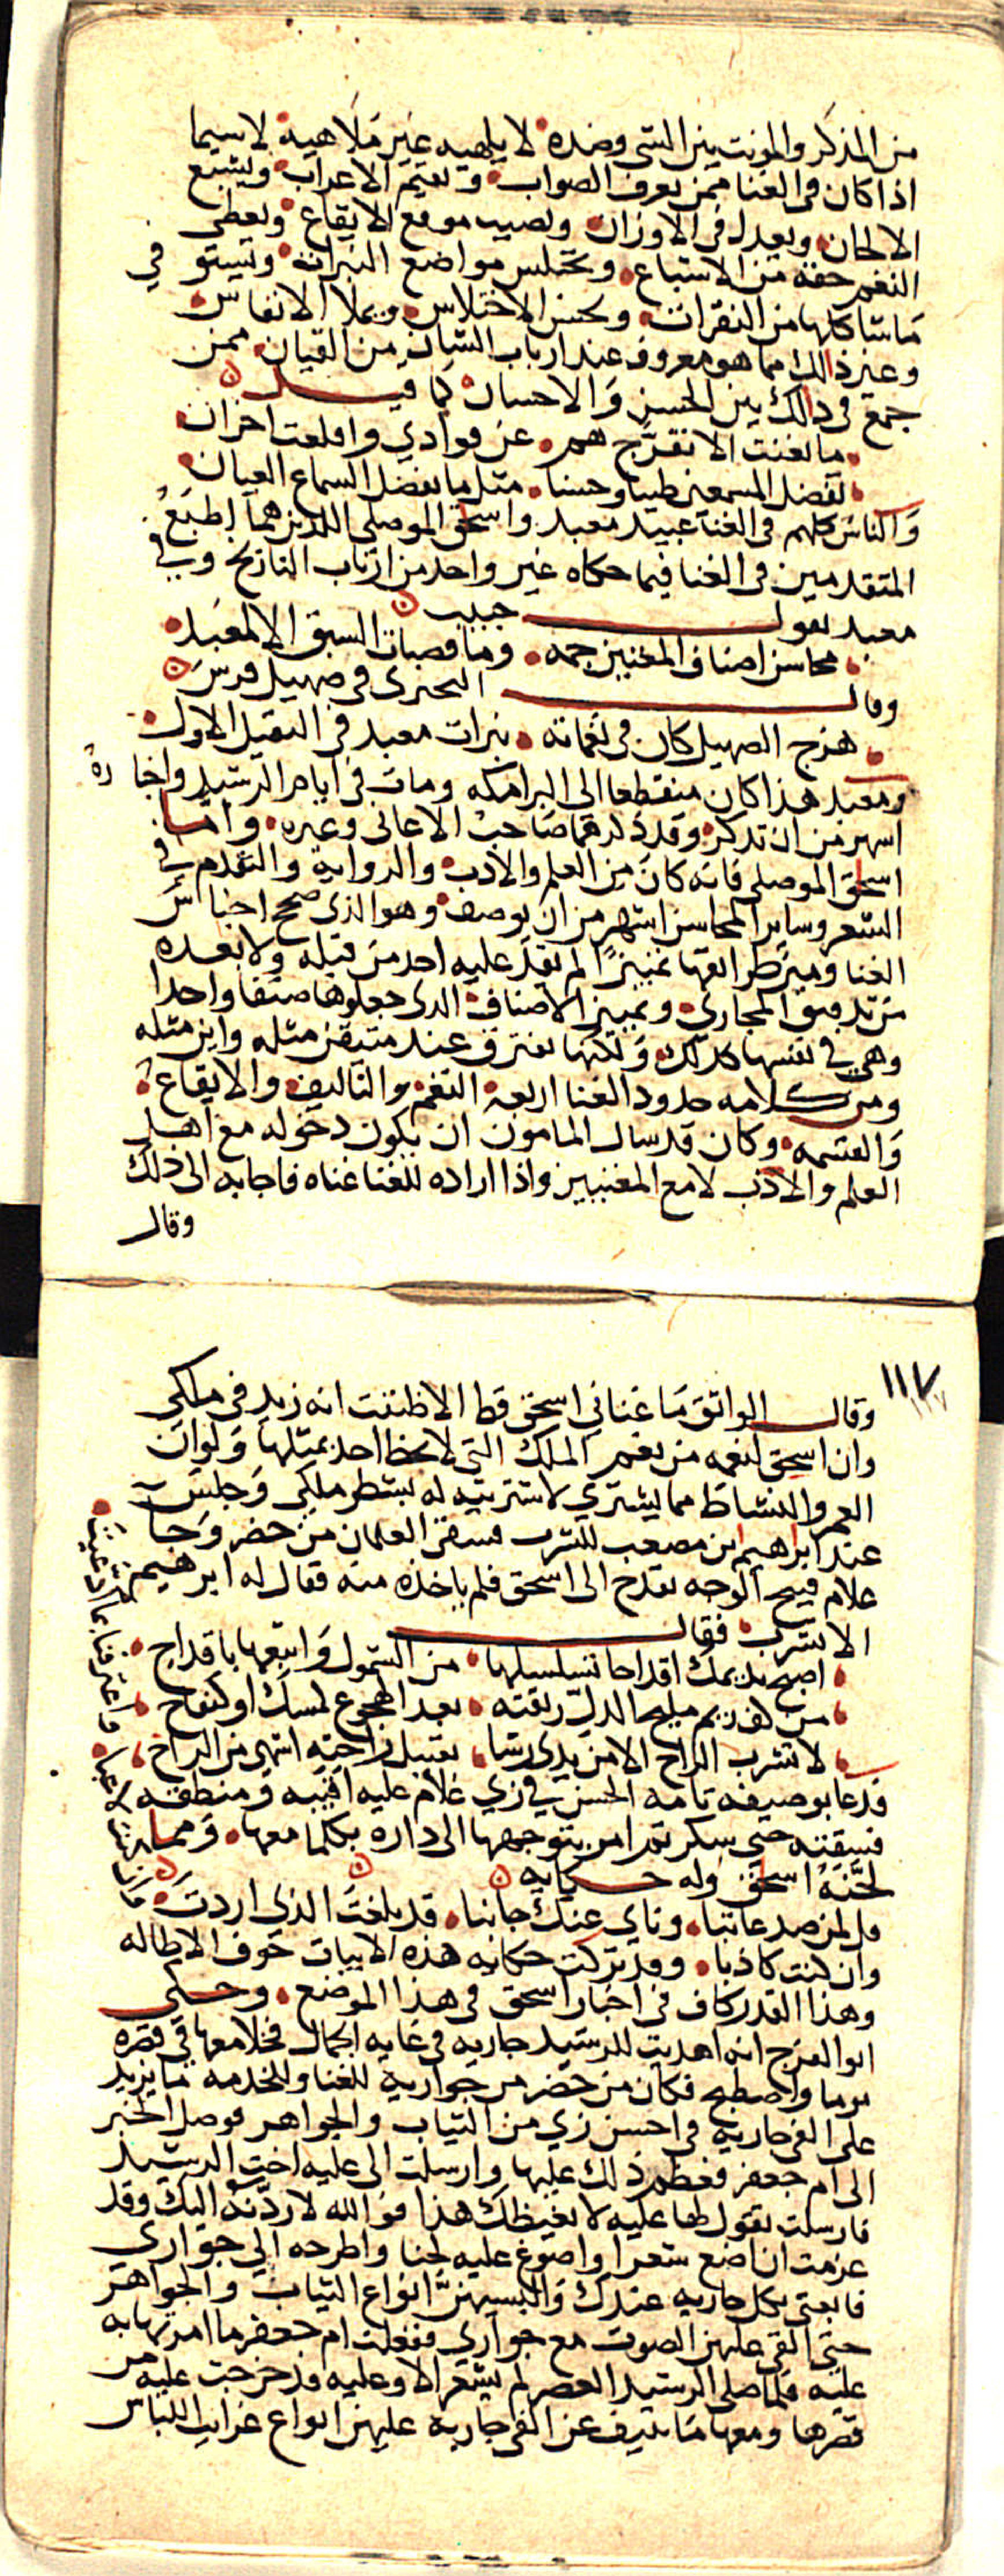 من المذكر والمونث بين الشي وضده لا يلهيه غير ملاهيه لا سيما
اذا كان في الغنا ممن يعرف الصواب ويقيم الاعراب ويشبع
الالحان ويعدل في الاوزان ويصيب موقع الايقاع ويعطي
النغم حقه من الاشباع ويختلس مواضع النبرات ويستوفي
ما شاكلها من النقرات ويحسن الاختلاس ويملا الانفاس
وغير ذالك مما هو معروف عند ارباب الشان من القيان ممن
جمع في ذالك بين الحسن والاحسان كما قيل
ما تغنت الا تفرج هم عن فوادي واقلعت احزان
تفضل المسمعين طيبا وحسنا مثل ما يفضل السماع العيان
والناس كلهم في الغنا عبيد معبد واسحق الموصلي اللذين هما اطبع
المتقدمين في الغنا فيما حكاه غير واحد من ارباب التاريخ وفي
معبد يقول حبيب
محاسن اصناف المغنين جمه وما قصبات السبق الا لمعبد
وقال البحتري في صهيل فرس
هزج الصهيل كان في نغماته نبرات معبد في الثقيل الاول
ومعبد هذا كان منقطعا الى البرامكه ومات في ايام الرشيد واخباره
اشهر من ان تذكر وقد ذكرها صاحب الاغاني وغيره واما
اسحق الموصلي فانه كان من العلم والادب والروايه والتقدم في
الشعر وساير المحاسن اشهر من ان يوصف وهو الذي صحح اجناس
الغنا وميز طرايقها تمييزا لم يقدر عليه احد من قبله ولا بعده
من تدقيق المجاري وتمييز الاصناف الذي جعلوها صنفا واحدا
وهي في نفسها كذلك ولكنها تفترق عند متيقن مثله واين مثله
ومن كلامه حدود الغنا اربعة النغم والتاليف والايقاع
والقسمه وكان قد سال المامون ان يكون دخوله مع اهل
العلم والادب لا مع المغنيين واذا اراده للغنا غناه فاجابه الى ذلك
وقال
١١٧
وقال الواثق ما غناني اسحق قط الا ظننت انه زيد في ملكي
وان اسحق لنعمه من نعم الملك التي لا يحظا احد بمثلها ولو ان
العمر والنشاط مما يشتري لاشتريته له بشطر ملكي وجلس
عند ابراهيم ابن مصعب للشرب فسقى الغلمان من حضر وجا
غلام قبيح الوجه بقدح الى اسحق فلم ياخذه منه فقال له ابرهيم
الا تشرب فقال
اصبح نديمك اقداحا تسلسلها من الشمول واتبعها باقداح
من كف ريم مليح الدل ريقته بعد الهجوع لمسك او كتفاح
لا تشرب الراح الا من يدي رشا تقبيل راحته اشهى من الراح
فدعا بوصيفه تامه الحسن في زي غلام عليه اقبيه ومنطقه
فسقته حتى سكر ثم امر بتوجيهها الى داره بكلما معها ومما
لحنه اسحق وله حكايه
قل لمن صد عاتبا وناي عنك جانبا قد بلغت الذي اردت
وان كنت كاذبا وقد تركت حكايه هذه الابيات خوف الاطاله
وهذا القدر كاف في اخبار اسحق في هذا الموضع وحكى
ابو الفرج انه اهديت للرشيد جاريه في غايه الجمال فخلا معها في قصره
يوما واصطبح فكان من حضر من جواريه للغنا وللخدمه ما يزيد
على الفي جاريه في احسن زي من الثياب والجواهر فوصل الخبر
الى ام جعفر فعظم ذلك عليها وارسلت الى عليه اخت الرشيد
فارسلت تقول لها عليه لا يغيظك هذا فوالله لاردنه اليك وقد
عزمت ان اضع شعرا واصوغ عليه لحنا واطرحه الى جواري
فابعثي بكل جاريه عندك والبسيهن انواع الثياب والجواهر
حتى القي عليهن الصوت مع جواري ففعلت ام جعفر ما امرتها به
عليه فلما صلى الرشيد العصر لم يشعر الا وعليه قد خرجت عليه من
قصرها ومعها ما ينيف عن الفي جاريه عليهن انواع غرايب اللباس